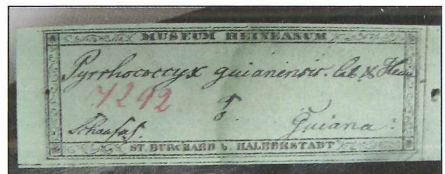 MUSEUM HEINEANUM
Pyrrhococcyx guianensis. Cab & Hein
7292
Guiana.
ST. BURCHARD V. HALBERSTADT